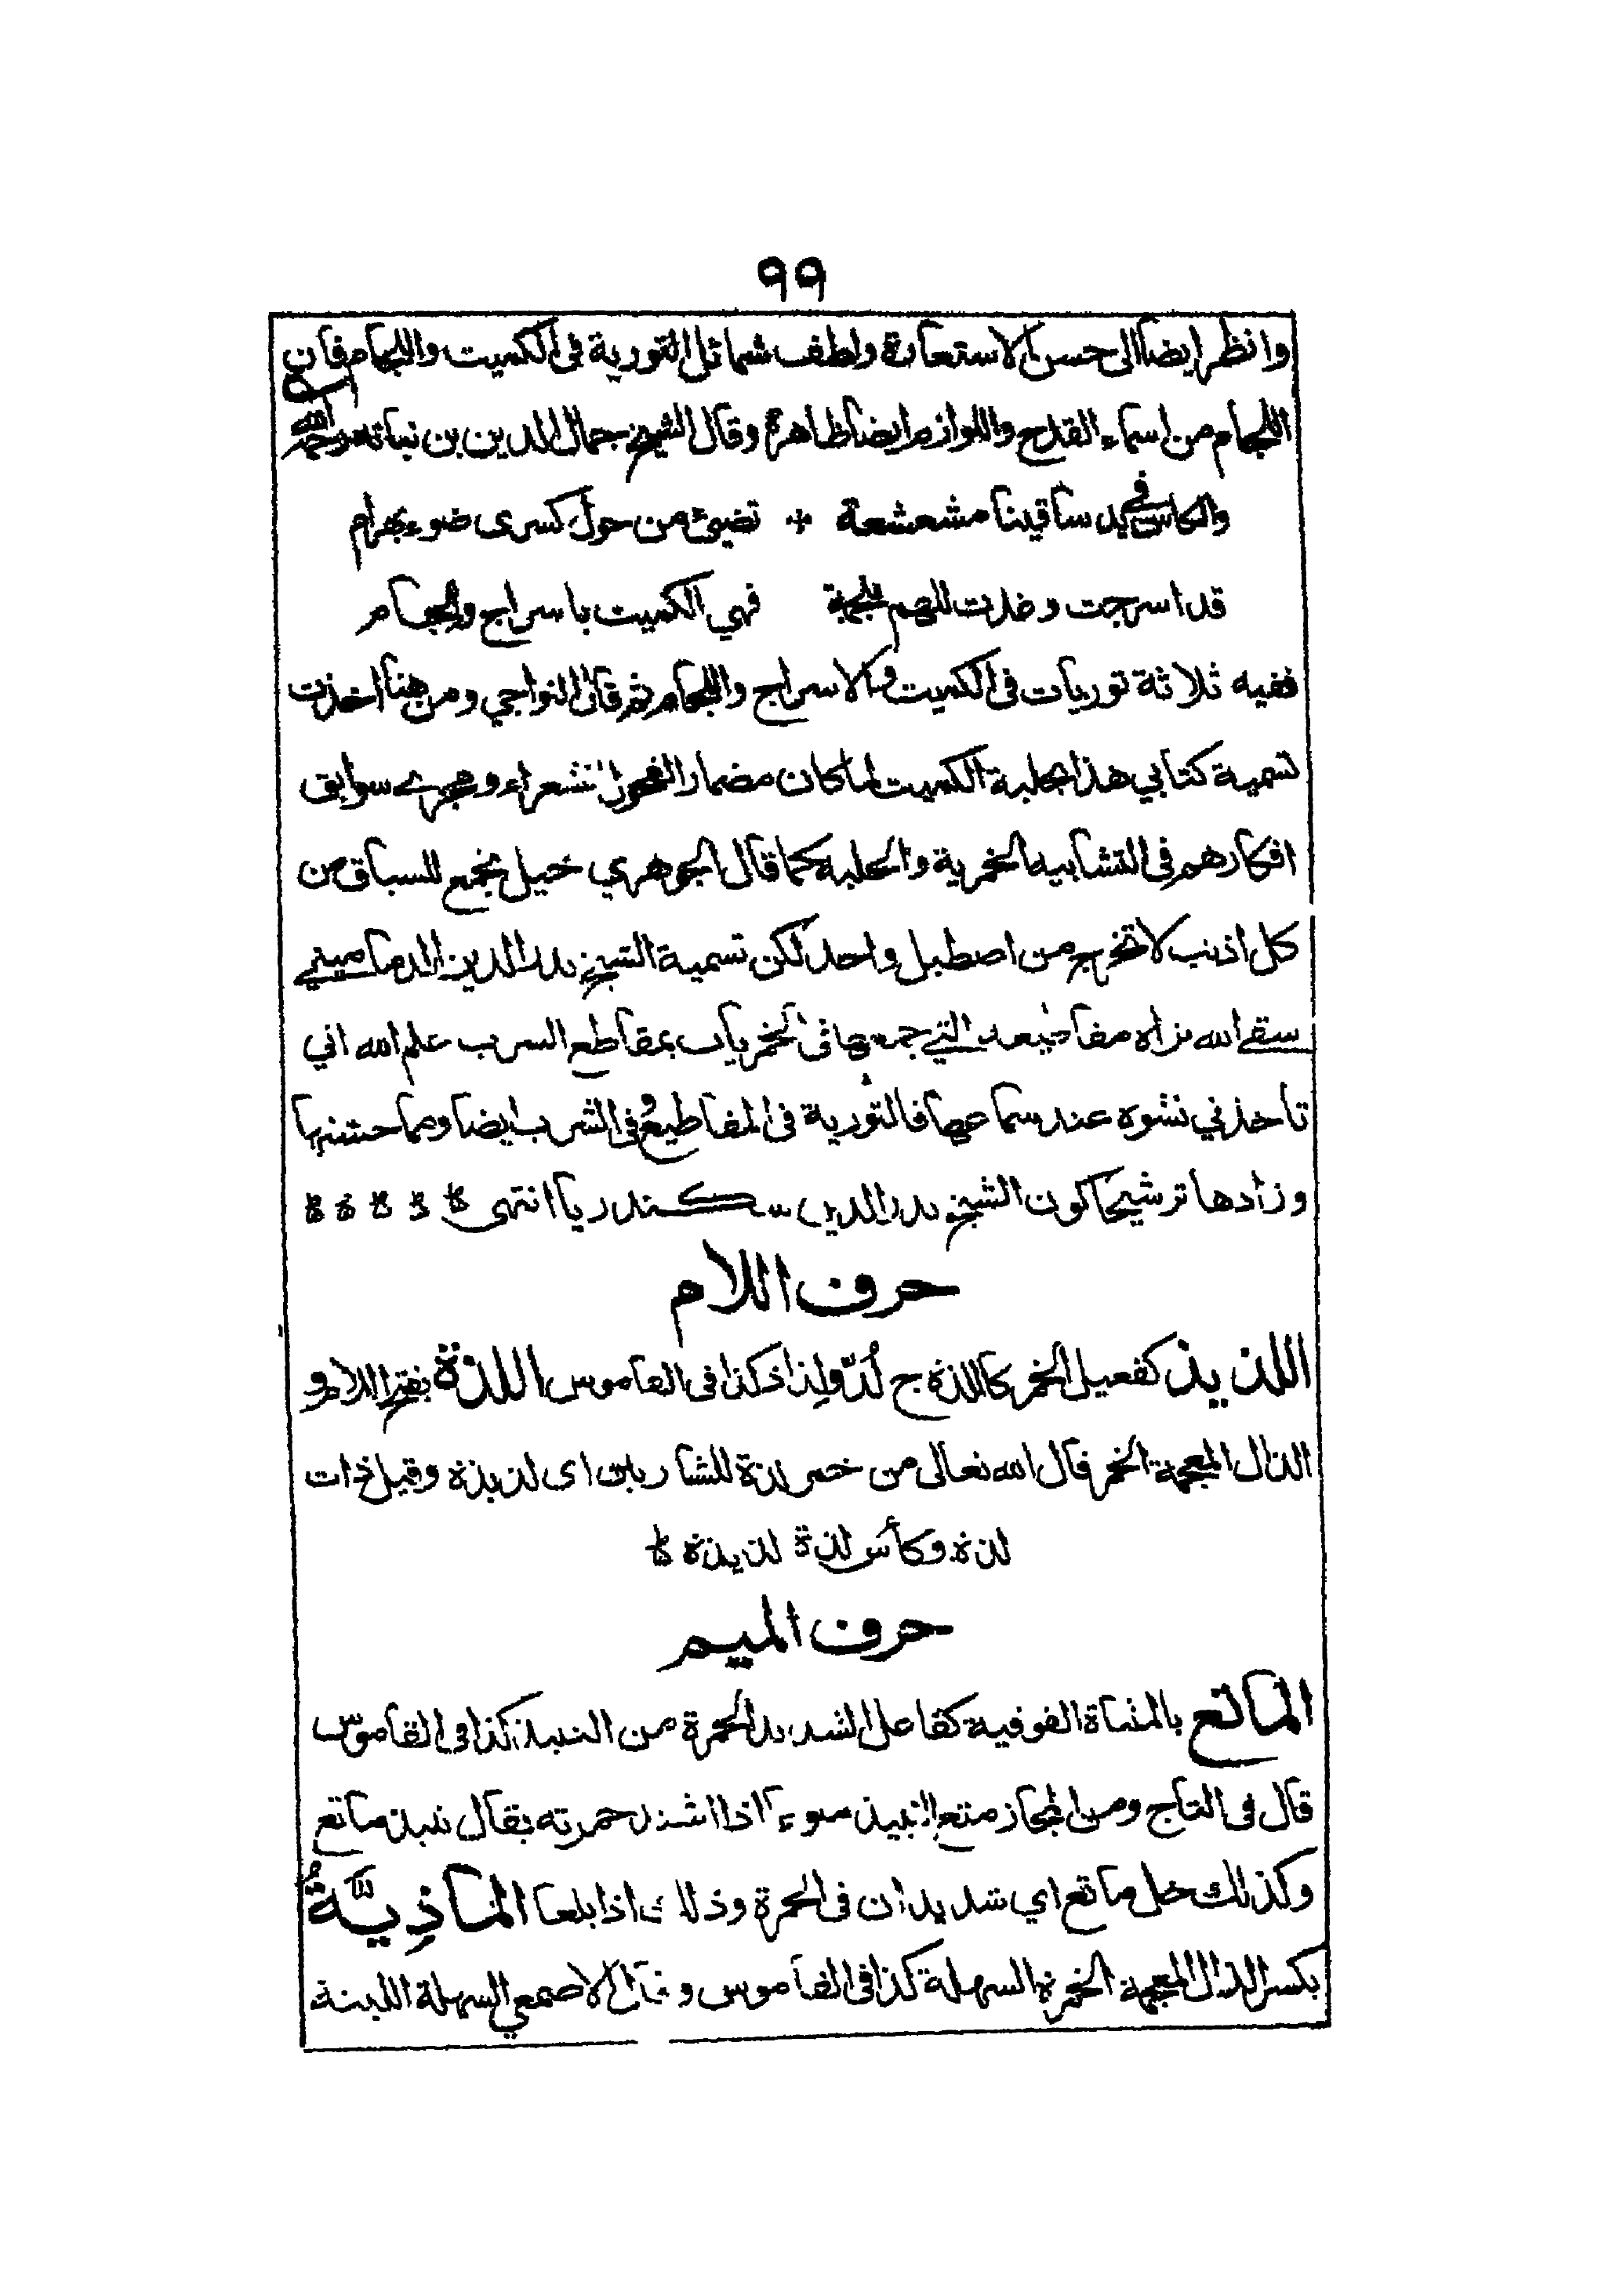 ٩٩
وانظر ايضا الى حسن الاستعارة ولطف شمائل التورية فى الكميت واللجام فان
اللجام من اسماء القدح واللوازم ايضا ظاهرة وقال الشيخ جمال الدين بن نباته رحمه الله
والكاس في يد ساقينا مشعشعة * تضيئ من حول كسرى ضوء بهرام
قد اسرجت وغدت للهم ملجمة فهي الكميت باسراج والجام
ففيه ثلاثة توريات فى الكميت والاسراج واللجام ثم قال النواجي ومن هنا اخذت
تسمية كتابي هذا بحلبة الكميت لما كان مضمار الفحول الشعراء ومجرى سوابق
افكارهم فى التشابيه الخمرية والحلبة كما قال الجوهري خيل تجمع للسباق من
كل اذنب لا تخرج من اصطبل واحد لكن تسمية الشيخ بدر الدين الدماميني
سقى الله ثراه مقاطيعه التي جمعها فى الخمريات بمقاطع الشرب علم الله اني
تاخذني نشوه عند سماعها فالتورية فى المقاطيع وفى الشرب ايضا ومما حسنها
وزادها ترشيحا كون الشيخ بدر الدين سكندريا انتهى
حرف اللام
اللذيذ كفعيل الخمر كاللذة ج لُذّ ولِذاذ كذا فى القاموس اللذة بفتح اللام و
الذال المعجمة الخمر قال الله تعالى من خمر لذة للشاربين اى لذيذة وقيل ذات
لذة وكأس لذة لذيذة
حرف الميم
الماتع بالمثناة الفوقية كفاعل الشديد الحمرة من النبيذ كذا فى القاموس
قال فى التاج ومن المجاز متع النبيذ متوعا اذا اشتد حمرته يقال نبيذ ماتع
وكذلك خل ماتع اي شديدان فى الحمرة وذلك اذا بلغا الماذِيَّةُ
بكسر الذال المعجمة الخمرة السهلة كذا فى القاموس وقال الاصمعي السهلة اللينة